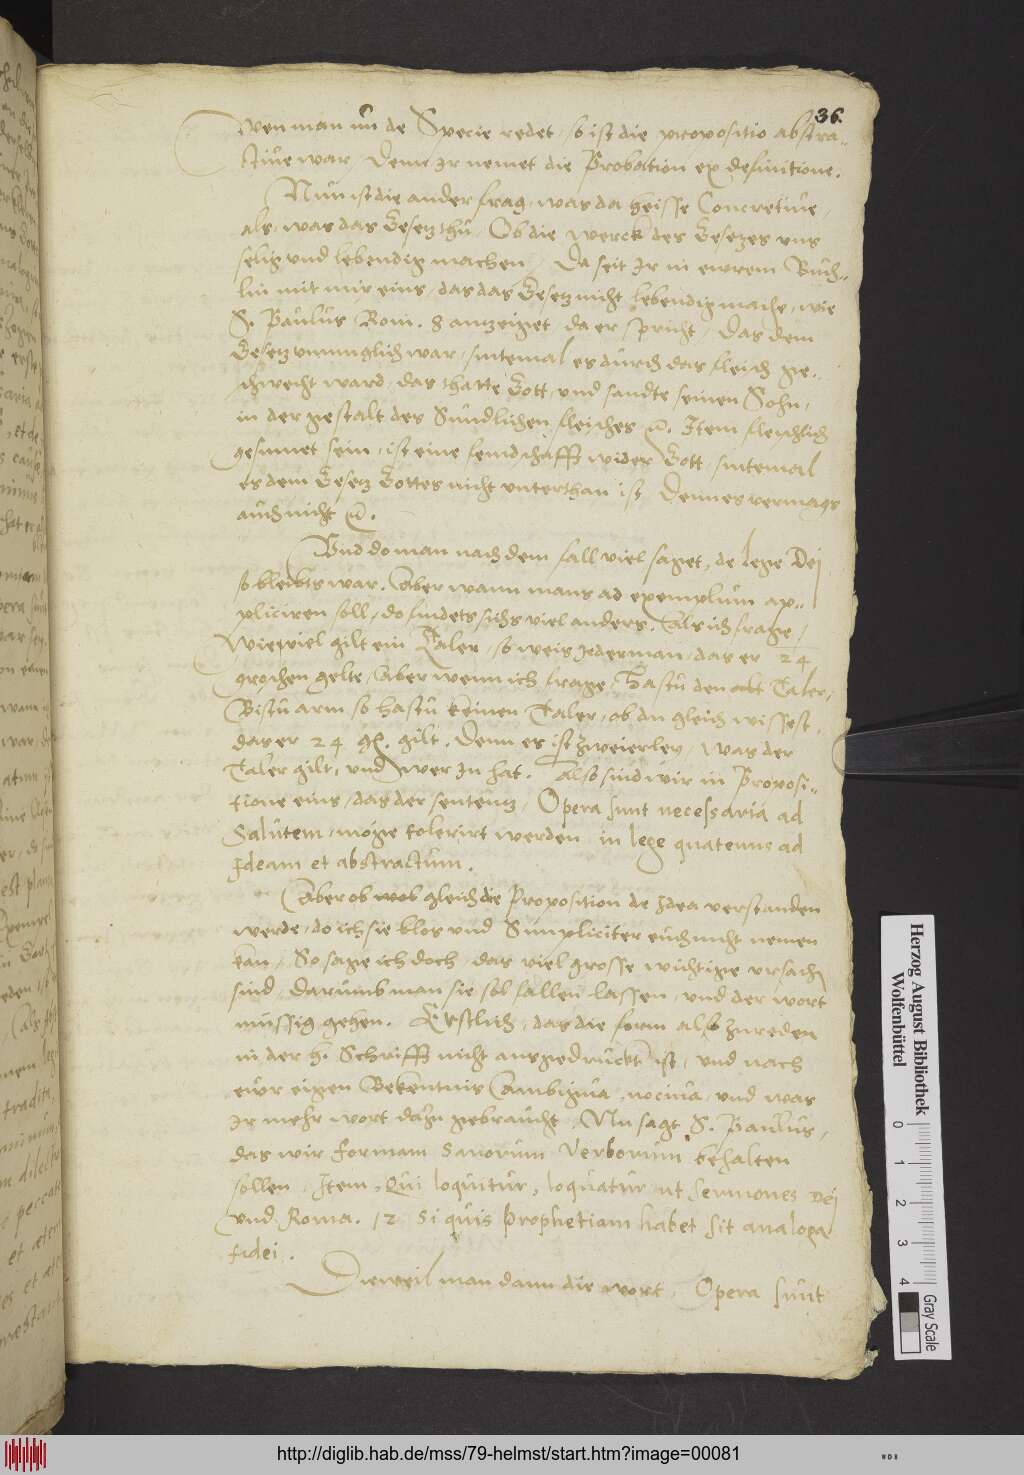 36.
Wen man nu de Specie redet, so ist die propositio abstra-
ctiue war, Denn Ir nemet die Probation ex definitione.
Nun ist die ander frag, was da heisse Concretiue,
als, was das Gesetz thu, Ob die werck des Gesetzes vns
selig vnd lebendig machen, Da seit Ir in ewrem Buch-
lin mit mir eins, das das Gesetz nicht lebendig mache, wie
S. Paulus Rom. 8 antzeiget, da er spricht, Das dem
Gesetz vnmuglich war, sintemal es durch das fleisch ge-
schwecht ward, das thatte Gott, vnd sandte seinen Sohn,
in der gestalt des Sundlichen fleisches etc. Item fleischlich
gesinnet sein, ist eine feindschafft wider Gott, sintemal
es dem Gesetz Gottes nicht vnterthan ist, Denn es vermags
auch nicht etc.
Vnd do man nach dem fall viel saget, de lege Dei
so bleibts war. Aber wann mans ad exemplum ap-
pliciren soll, do findets sichs viel anders. Als ich frage,
Wieviel gilt ein Taler, so weis Iderman, das er 24
groschen gelte, Aber wenn ich frage, Hastu den Taler,
Bistu arm so hastu keinen Taler, ob du gleich wissest,
das er 24 gl. gilt. Denn es ist zweierley, Was der
Taler gilt, und wer In hat. Also sind wir in Proposi-
tione eins, das der sententz, Opera sunt necessaria ad
Salutem, möge tolerirt werden in lege quatenus ad
Ideam et abstractum.
Aber ob wol gleich die Proposition de Idea verstanden
werde, do ich sie blos vnd Simpliciter auch nicht nemen
kan, So sage ich doch, das viel grosse wichtige vrsach
sind, darumb man sie sol fallen lassen, vnd der wort
mussig gehen. Erstlich, das die form also zureden
in der h. Schrifft nicht ausgedruckt ist, vnd nach
ewr eigen Bekentnis Ambigua, nociua, vnd was
Ir mehr wort dazu gebraucht, Nu sagt S. Paulus,
das wir formam Sanorum Verborum behalten
sollen, Item, Qui loquitur, loquatur ut sermones Dei
vnd Roma. 12 Si quis Prophetiam habet sit analoga
fidei.
Dieweil man dann die wort, Opera sunt
Herzog August Bibliothek
Wolfenbüttel
0 1 2 3 4
Gray Scale
http://diglib.hab.de/mss/79-helmst/start.htm?image=00081